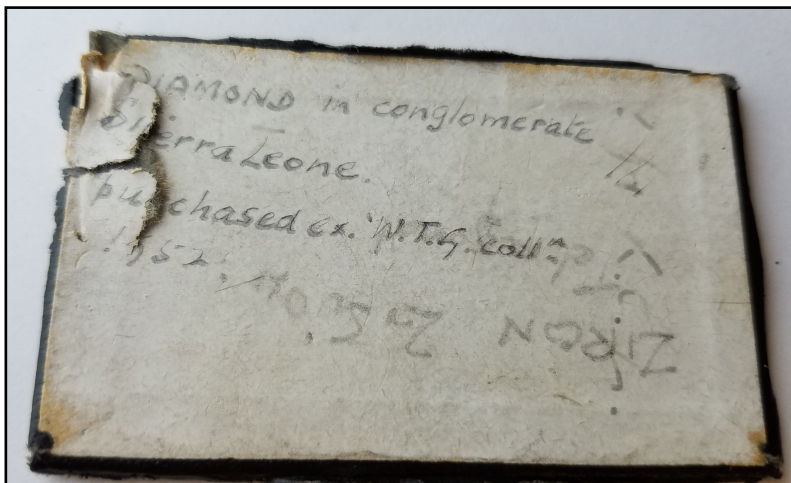 DIAMOND in conglomerate
Sierra Leone.
purchased ex. W.T.G. collⁿ
1952.
ZIRON